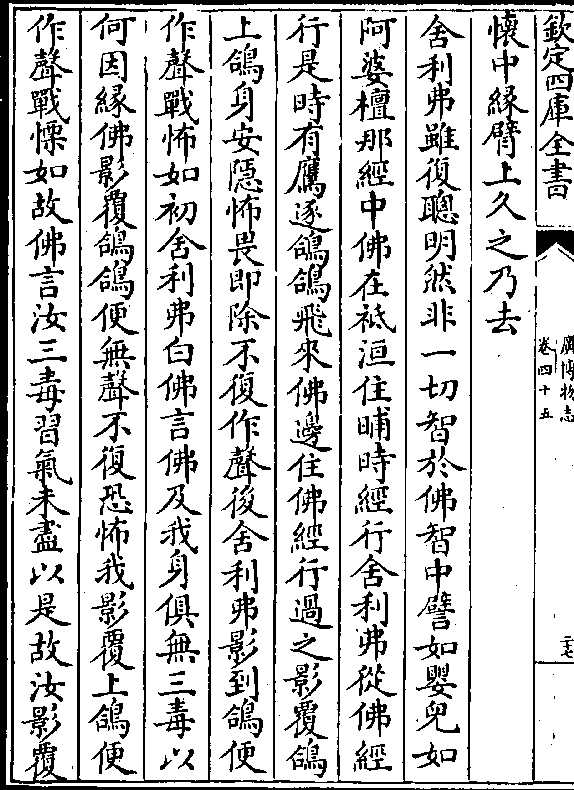 欽定四庫全書
廣博物志
卷四十五
三七
懷中緣臂上久之乃去
舍利弗雖復聰明然非一切智於佛智中譬如嬰兒如
阿婆檀那經中佛在祗洹住晡時經行舍利弗從佛經
行是時有鷹逐鴿鴿飛來佛邊住佛經行過之影覆鴿
上鴿身安隱怖畏即除不復作聲後舍利弗影到鴿便
作聲戰怖如初舍利弗白佛言佛及我身俱無三毒以
何因緣佛影覆鴿鴿便無聲不復恐怖我影覆上鴿便
作聲戰慄如故佛言汝三毒習氣未盡以是故汝影覆